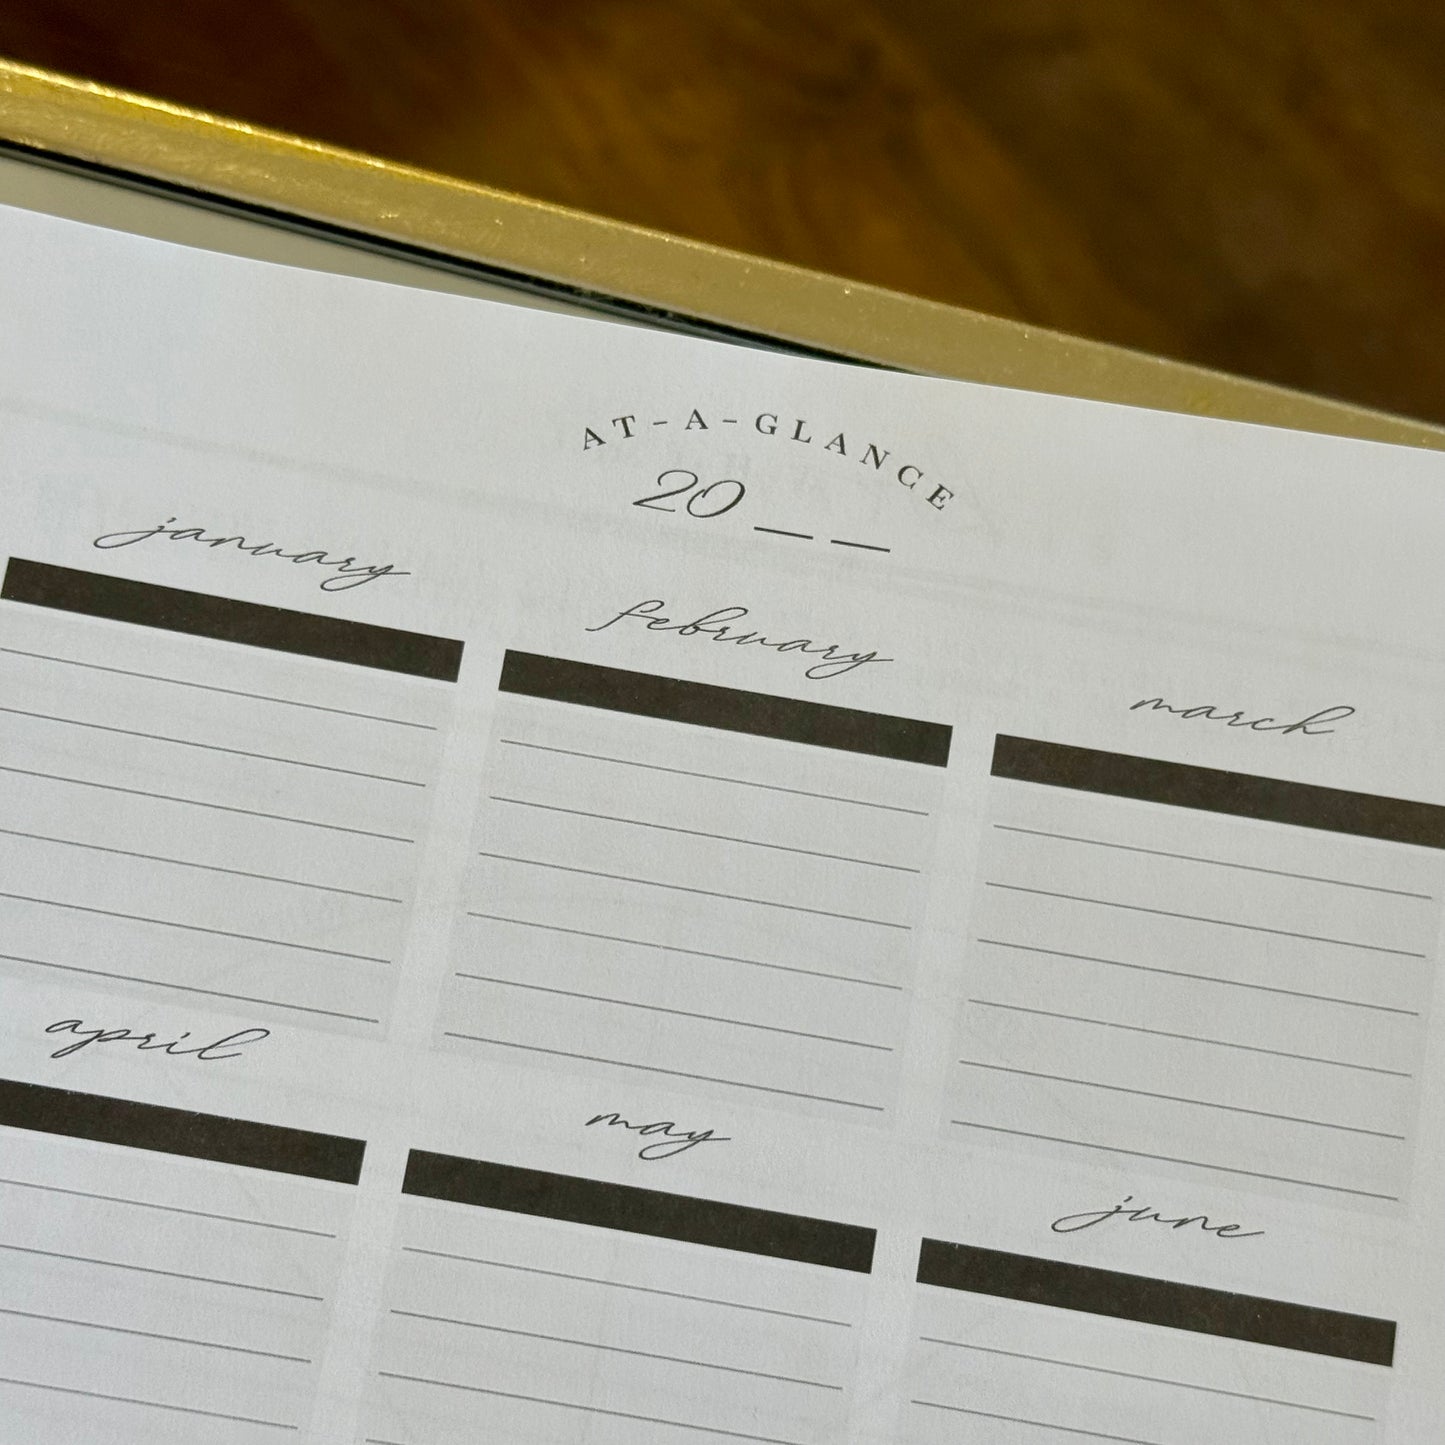 AT-A-GLANCE
20 _ _
january
february
march
april
may
june